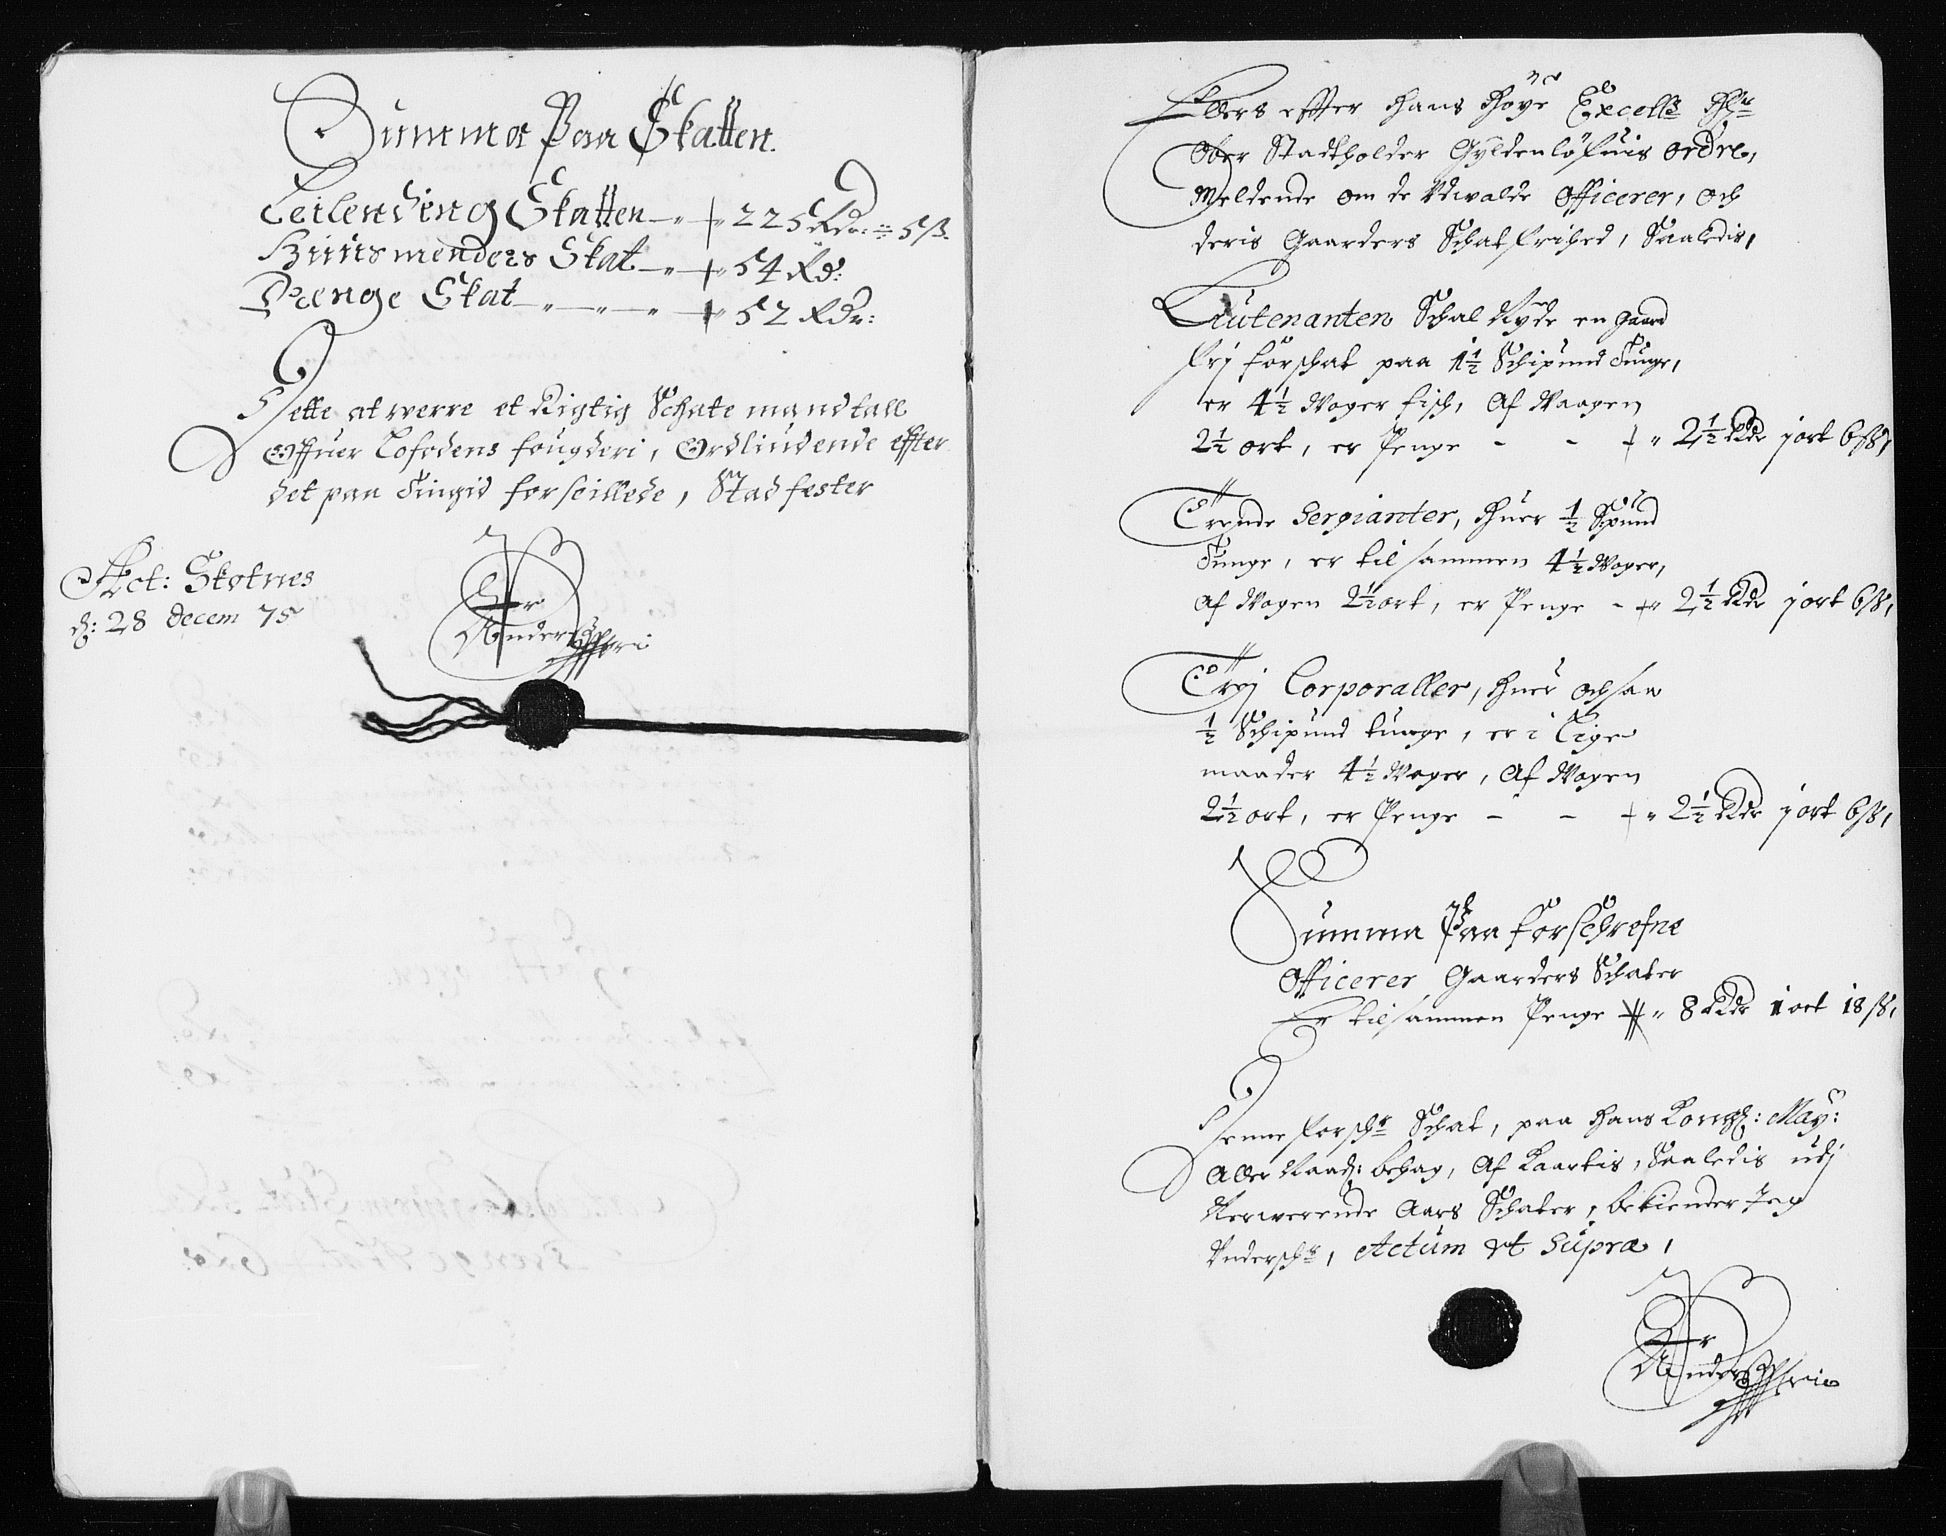 Summa Paa Skatten.
Leilending Skatten — „ — 225 Rdr: ÷ 5 ß.
Huusmenders Skat — „ — 54 Rd:
Drenge Skat — „ — „ — „ — 52 Rdr:
Dette at werre et Rigtig Schate mandtall
Offuer Lofodens fougderi, Ordliudende effter
det paa Tingid forseillede, Stadfester
Act: Skotnes
d: 28 decem 75
Ellers effter Hans Høye Excell: Hr
Ober Stadtholder Gyldenløfuis ordre,
Meldende om de Udwalde Officerer, och
deris Gaarders Schatfrihed, Saaledis,
Leutenanten Schal Nyde en gaard
frj for schat paa 1½ Schipund Tunge,
er 4½ Woger fisch, Af Waagen
2½ ort, er Penge - - „ 2½ Rdr j ort 6 ß,
Trende Sergianter, Huer ½ Spund
Tunge, er tilsammen 4½ Woger,
Af Wogen 2½ ort, er Penge - „ 2½ Rdr j ort 6 ß,
Trej Corporaller, Huer ochsaa
½ Schipund tunge, er i Lige
maader 4½ Woger, Af Wogen
2½ ort, er Penge - - „ 2½ Rdr j ort 6 ß,
Summa Paa forschrefne
Officerer Gaarders Schater
Er tilsammen Penge „ 8 Rdr 1 ort 18 ß,
Denne forschr: Schat, paa Hans Kongl: May:
Aller Naad: behag, Af Kaartis, Saaledis udj
Nerwerende Aars Schater, bekiender Jeg
Underschr, Actum ut Supra,